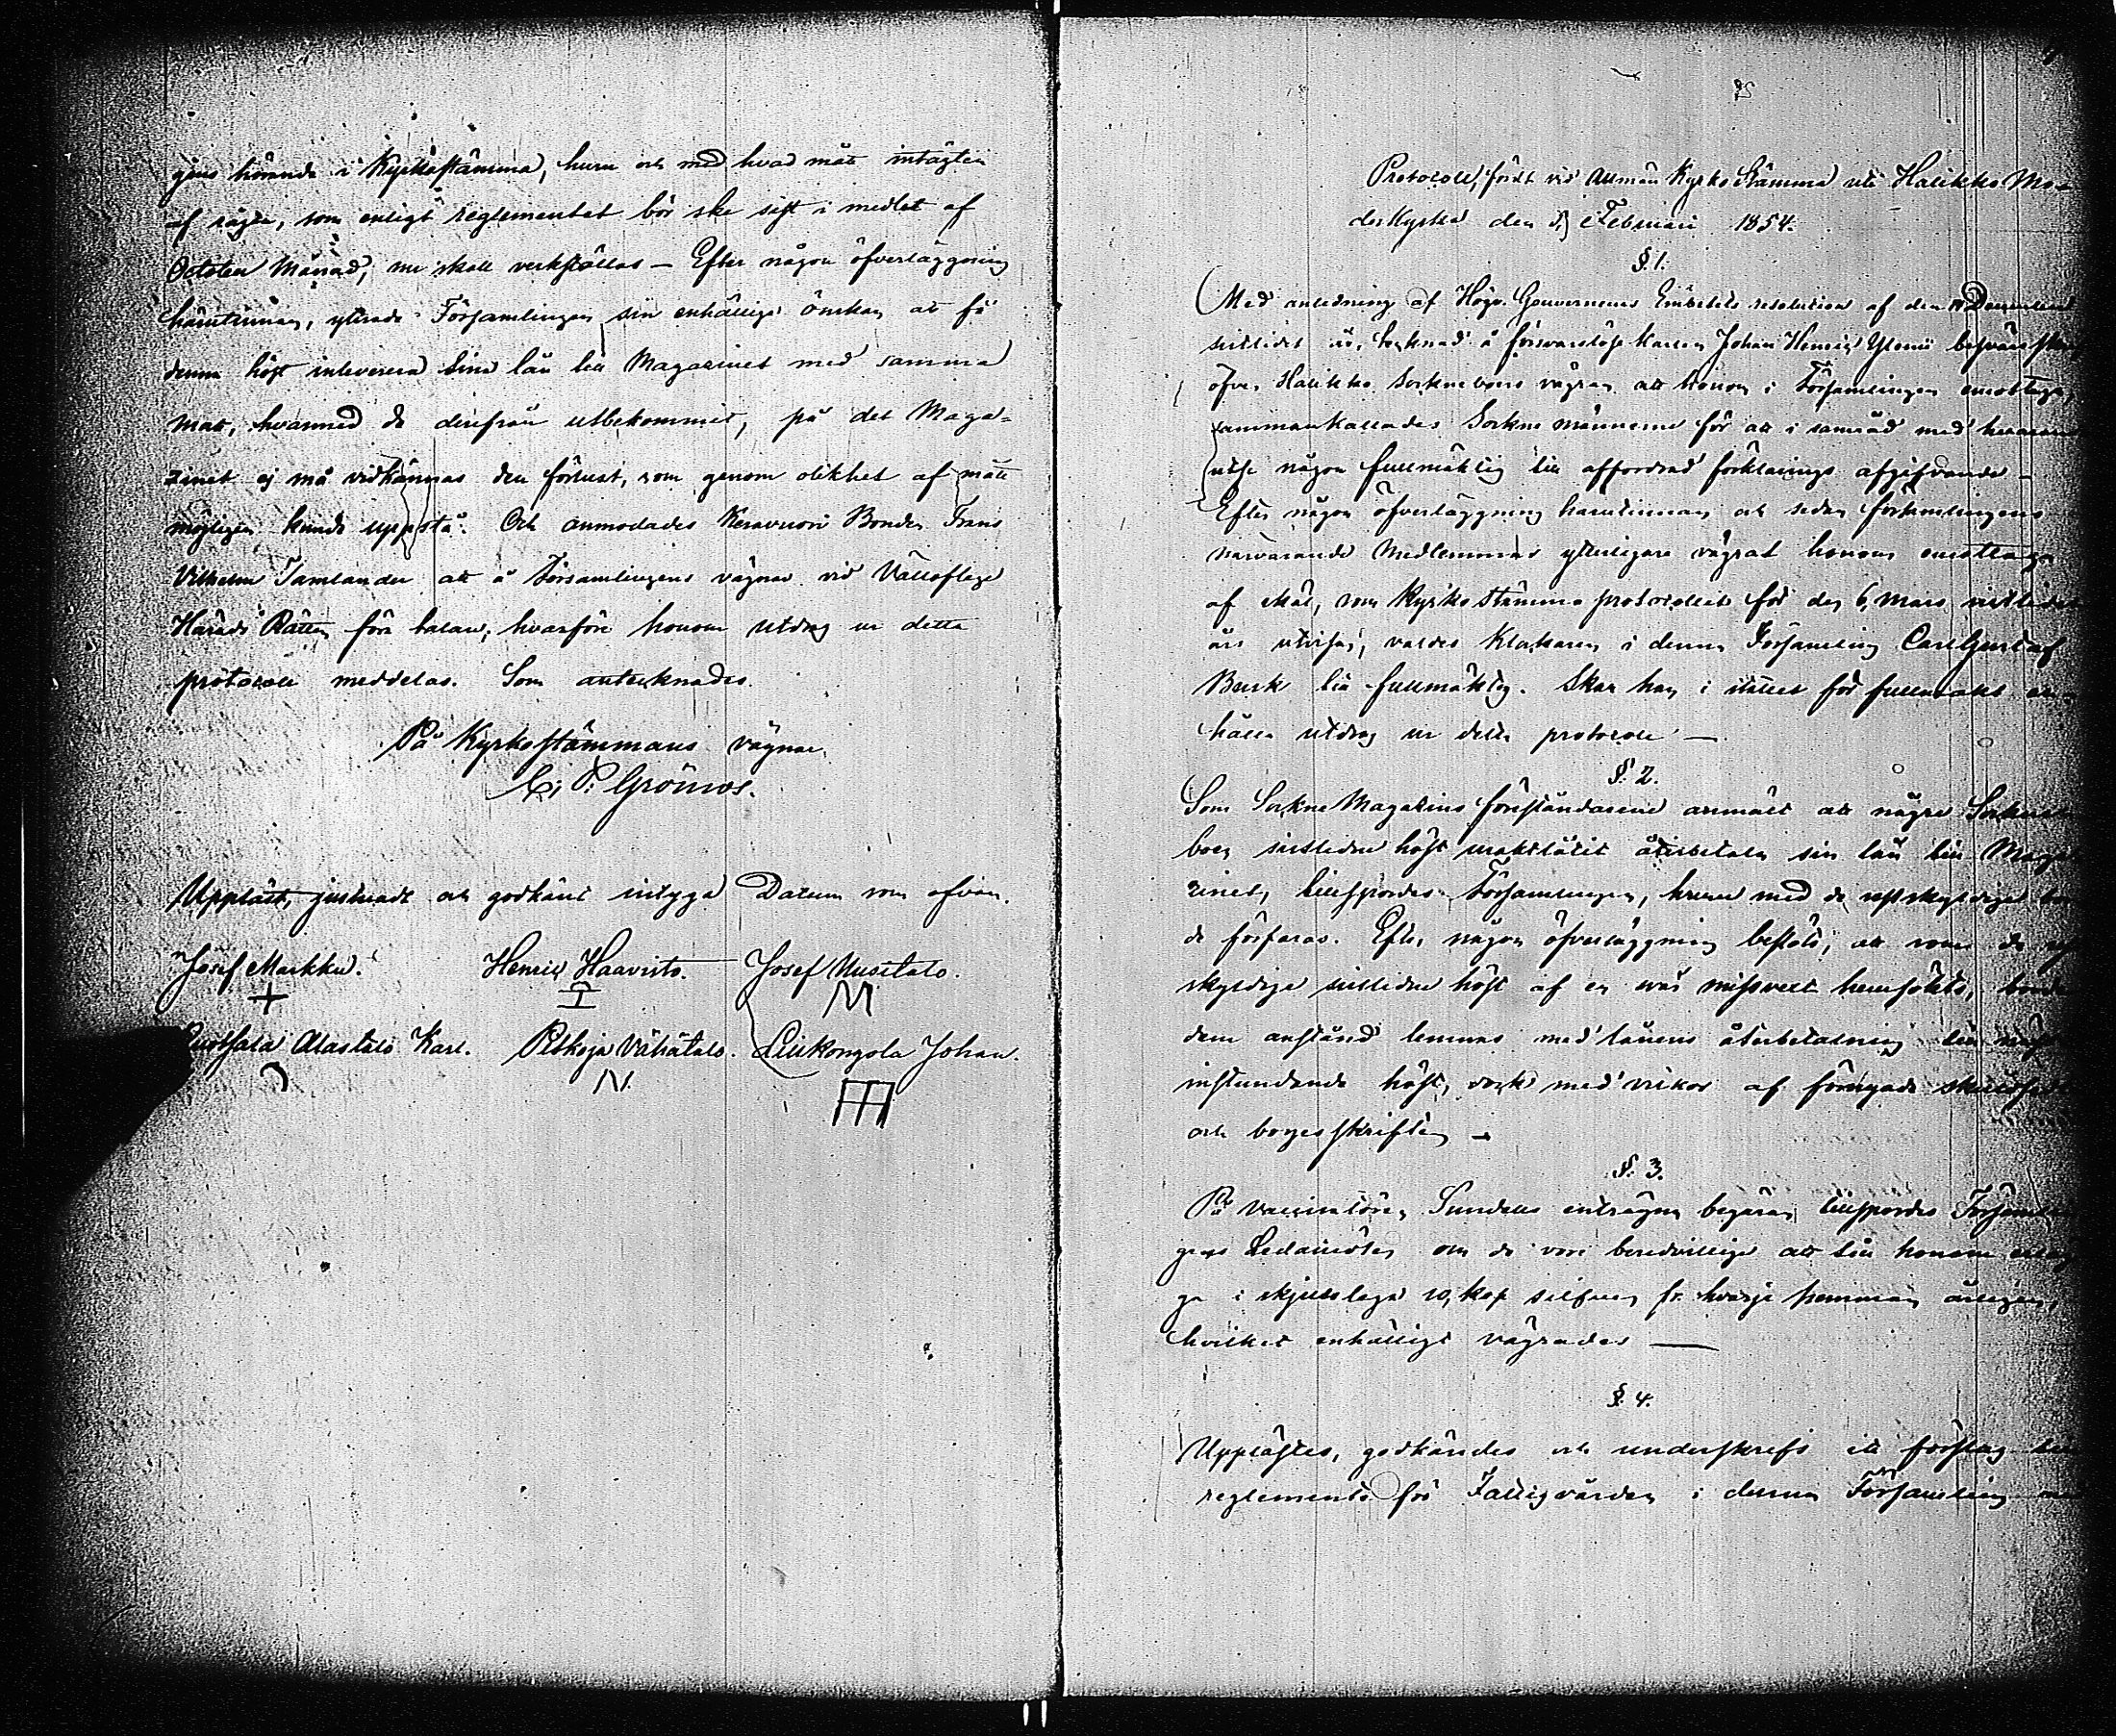 gens hörande i Kyrkostämma, huru och med hvad mått intägten
af råge, som enligt reglementet bör ske sist i medlet af
October Månad, nu skall verkställas — Efter någon öfverläggning
härutinnan, yttrade Församlingen sin enhälliga önskan att få
denna höst inleverera sina lån till Magazinet med samma
mått, hvarmed de derifrån utbekommit, på det Maga-
zinet ej må vidkännas den förlust, som genom olikhet af mått
möjligen kunde uppstå. Och anmodades Keravuori Bonden Frans
Vilhelm Tamlander att å Församlingens vägnar vid Vällofliga
Härads Rätten föra talan; hvarföre honom utdrag ur detta
protocoll meddelas. Som antecknades.
På Kyrkostämmans vägnar
Uppläst, justeradt och godkänt intyga Datum som ofvan.
Josef Markku. Henric Haavisto. Josef Uusitalo.
Alastalo Karl. Petkoja Vähätalo. Lillikongola Johan.
Protocoll, fördt vid Allmän Kyrko Stämma uti Halikko Mo-
derkyrka den Februari 1854.
§. 1.
Med anledning af Höga Gouverneurs Embetets resolution af den December
sistlidet år, tecknad å försvarslöse karlen Johan Henric besvärsskrift
öfver Halikko Sockneboers vägran att honom i Församlingen emottaga,
sammankallades Sockne männerne för att i samråd med hvarannan
utse någon fullmäktig till affordrad förklarings afgifvande —
Efter någon öfverläggning härutinnan och sedan församlingens
närvarande Medlemmar ytterligare vägrat honom emottaga
af skäl, som Kyrkostämmo protocollet för den 6 Mars sistlidet
års utvisar, valdes Klockaren i denna Församling Carl Gustaf
Burk till fullmäktig. Skar han i stället för fullmakt er-
hålla utdrag ur detta protocoll —
§. 2.
Som Sockne Magazins föreståndarene anmält att några Sockne-
boer sistlidne höst uraktlåtit återbetala sin lån till Maga-
zinet, tillspordes Församlingen, huru med de restskyldige
de förfaras. Efter någon öfverläggning beslöts, att som de
skyldige sistlidne höst af en svår missvext hemsökts, borde
dem anstånd lemnas med lånens återbetalning till
instundande höst, dock med vilkor af förnyade
och borgesskriften —
§. 3.
På Vaccinatören Sundells enträgna begäran tillspordes Församlin-
gens Ledamöter om de vore beredvillige att till honom
ga i skjutslega 10 kop silfver fr. hvarje hemman årligen,
hvilket enhälligt vägrades —
§. 4.
Upplästes, godkändes och underskrefs ett förslag
reglemente för Fattigvården i denna Församling